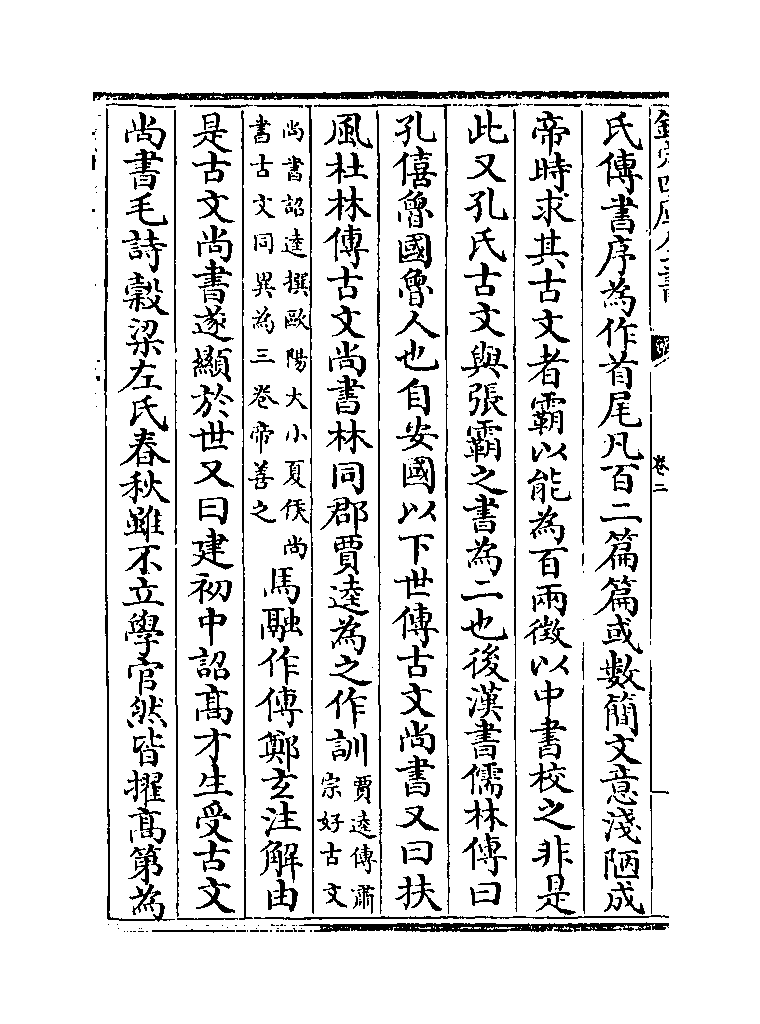 欽定四庫全書 卷二
氏傳書序為作首尾凡百二篇篇或數簡文意淺陋成
帝時求其古文者霸以能為百兩徴以中書校之非是
此又孔氏古文與張霸之書為二也後漢書儒林傳曰
孔僖魯國魯人也自安國以下世傳古文尚書又曰扶
風杜林傳古文尚書林同郡賈逵為之作訓賈逵傳肅宗好古文
尚書詔逵撰歐陽大小夏侯尚書古文同異為三卷帝善之馬融作傳鄭玄注解由
是古文尚書遂顯於世又曰建初中詔髙才生受古文
尚書毛詩榖梁左氏春秋雖不立學官然皆擢髙第為